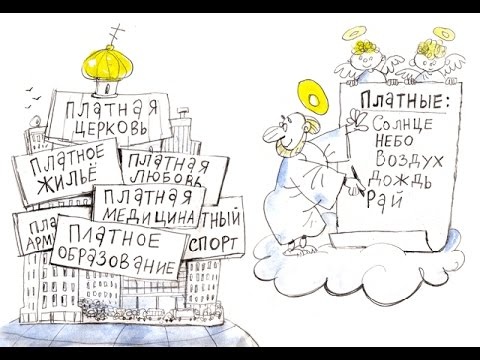 ПЛАТНАЯ
ЦЕРКОВЬ
ПЛАТНОЕ
ЖИЛЬЁ
ПЛАТНАЯ
ЛЮБОВЬ
ПЛАТНАЯ
МЕДИЦИНА
ТНЫЙ
СПОРТ
АРМ
ПЛАТНОЕ
ОБРАЗОВАНИЕ
ПЛАТНЫЕ:
СОЛНЦЕ
НЕБО
ВОЗДУХ
ДОЖДЬ
РАЙ